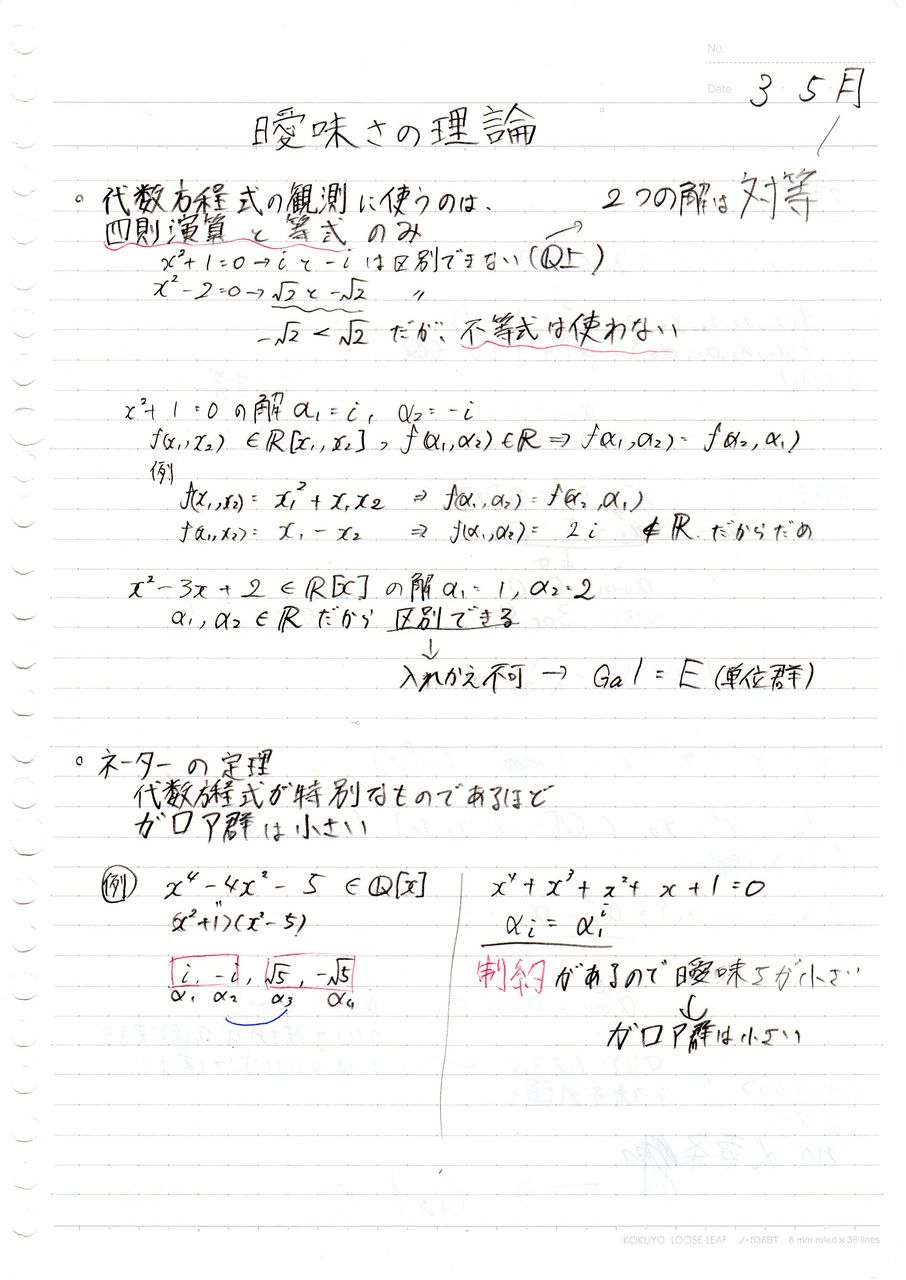 No.
Date 3 5 月
曖昧さの理論
。代数方程式の観測に使うのは、 2つの解は対等
四則演算と等式のみ
x²+1=0→iと-iは区別できない(ℚ上)
x²-2=0→√2と-√2 〃
-√2<√2 だが、不等式は使わない
x²+1=0の解 α₁=i, α₂=-i
f(x₁,x₂)∈ℝ[x₁,x₂], f(α₁,α₂)∈ℝ ⇒ f(α₁,α₂)=f(α₂,α₁)
例
f(x₁,x₂)=x₁²+x₁x₂ ⇒ f(α₁,α₂)=f(α₂,α₁)
f(x₁,x₂)=x₁-x₂ ⇒ f(α₁,α₂)=2i ∉ℝ だからだめ
x²-3x+2∈ℝ[x]の解 α₁=1, α₂=2
α₁,α₂∈ℝだから 区別できる
↓
入れかえ不可 → Gal=E(単位群)
。ネーターの定理
代数方程式が特別なものであるほど
ガロア群は小さい
例 x⁴-4x²-5 ∈ℚ[x]
"
(x²+1)(x²-5)
i, -i, √5, -√5
α₁ α₂ α₃ α₄
x⁴+x³+x²+x+1=0
αᵢ=α₁ⁱ
制約があるので曖昧さが小さい
↓
ガロア群は小さい
KOKUYO LOOSE-LEAF ノ-836BT 6 mm ruled×36 lines